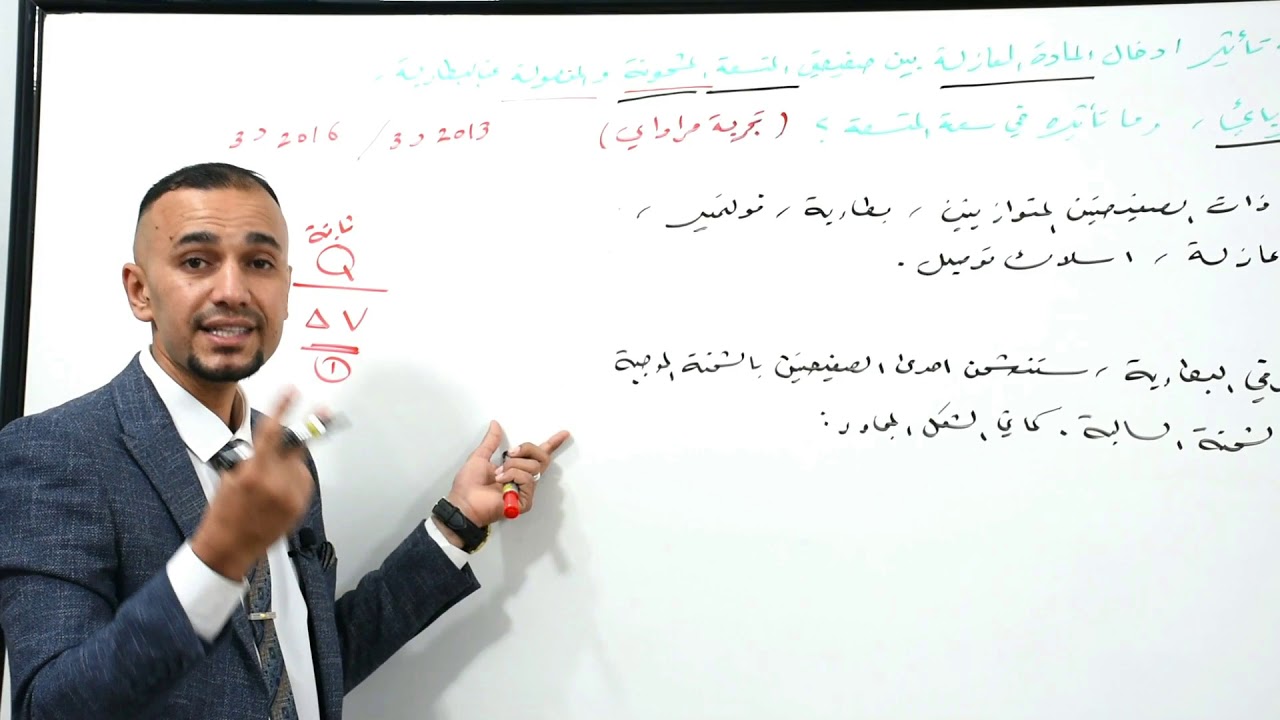 تأثير ادخال المادة العازلة بين صفيحتي المتسعة المشحونة والمفصولة عن البطارية
وما تأثيره في سعة المتسعة ؟ ( تجربة فراداي ) 2013 د3 / 2016 د3
ذات الصفيحتين المتوازيتين ، بطارية ، فولتميتر ،
عازلة ، اسلاك توصيل .
البطارية ، ستنشحن احدى الصفيحتين بالشحنة الموجبة
السالبة . كما في الشكل المجاور :
ثابتة
Q
Δ V
①